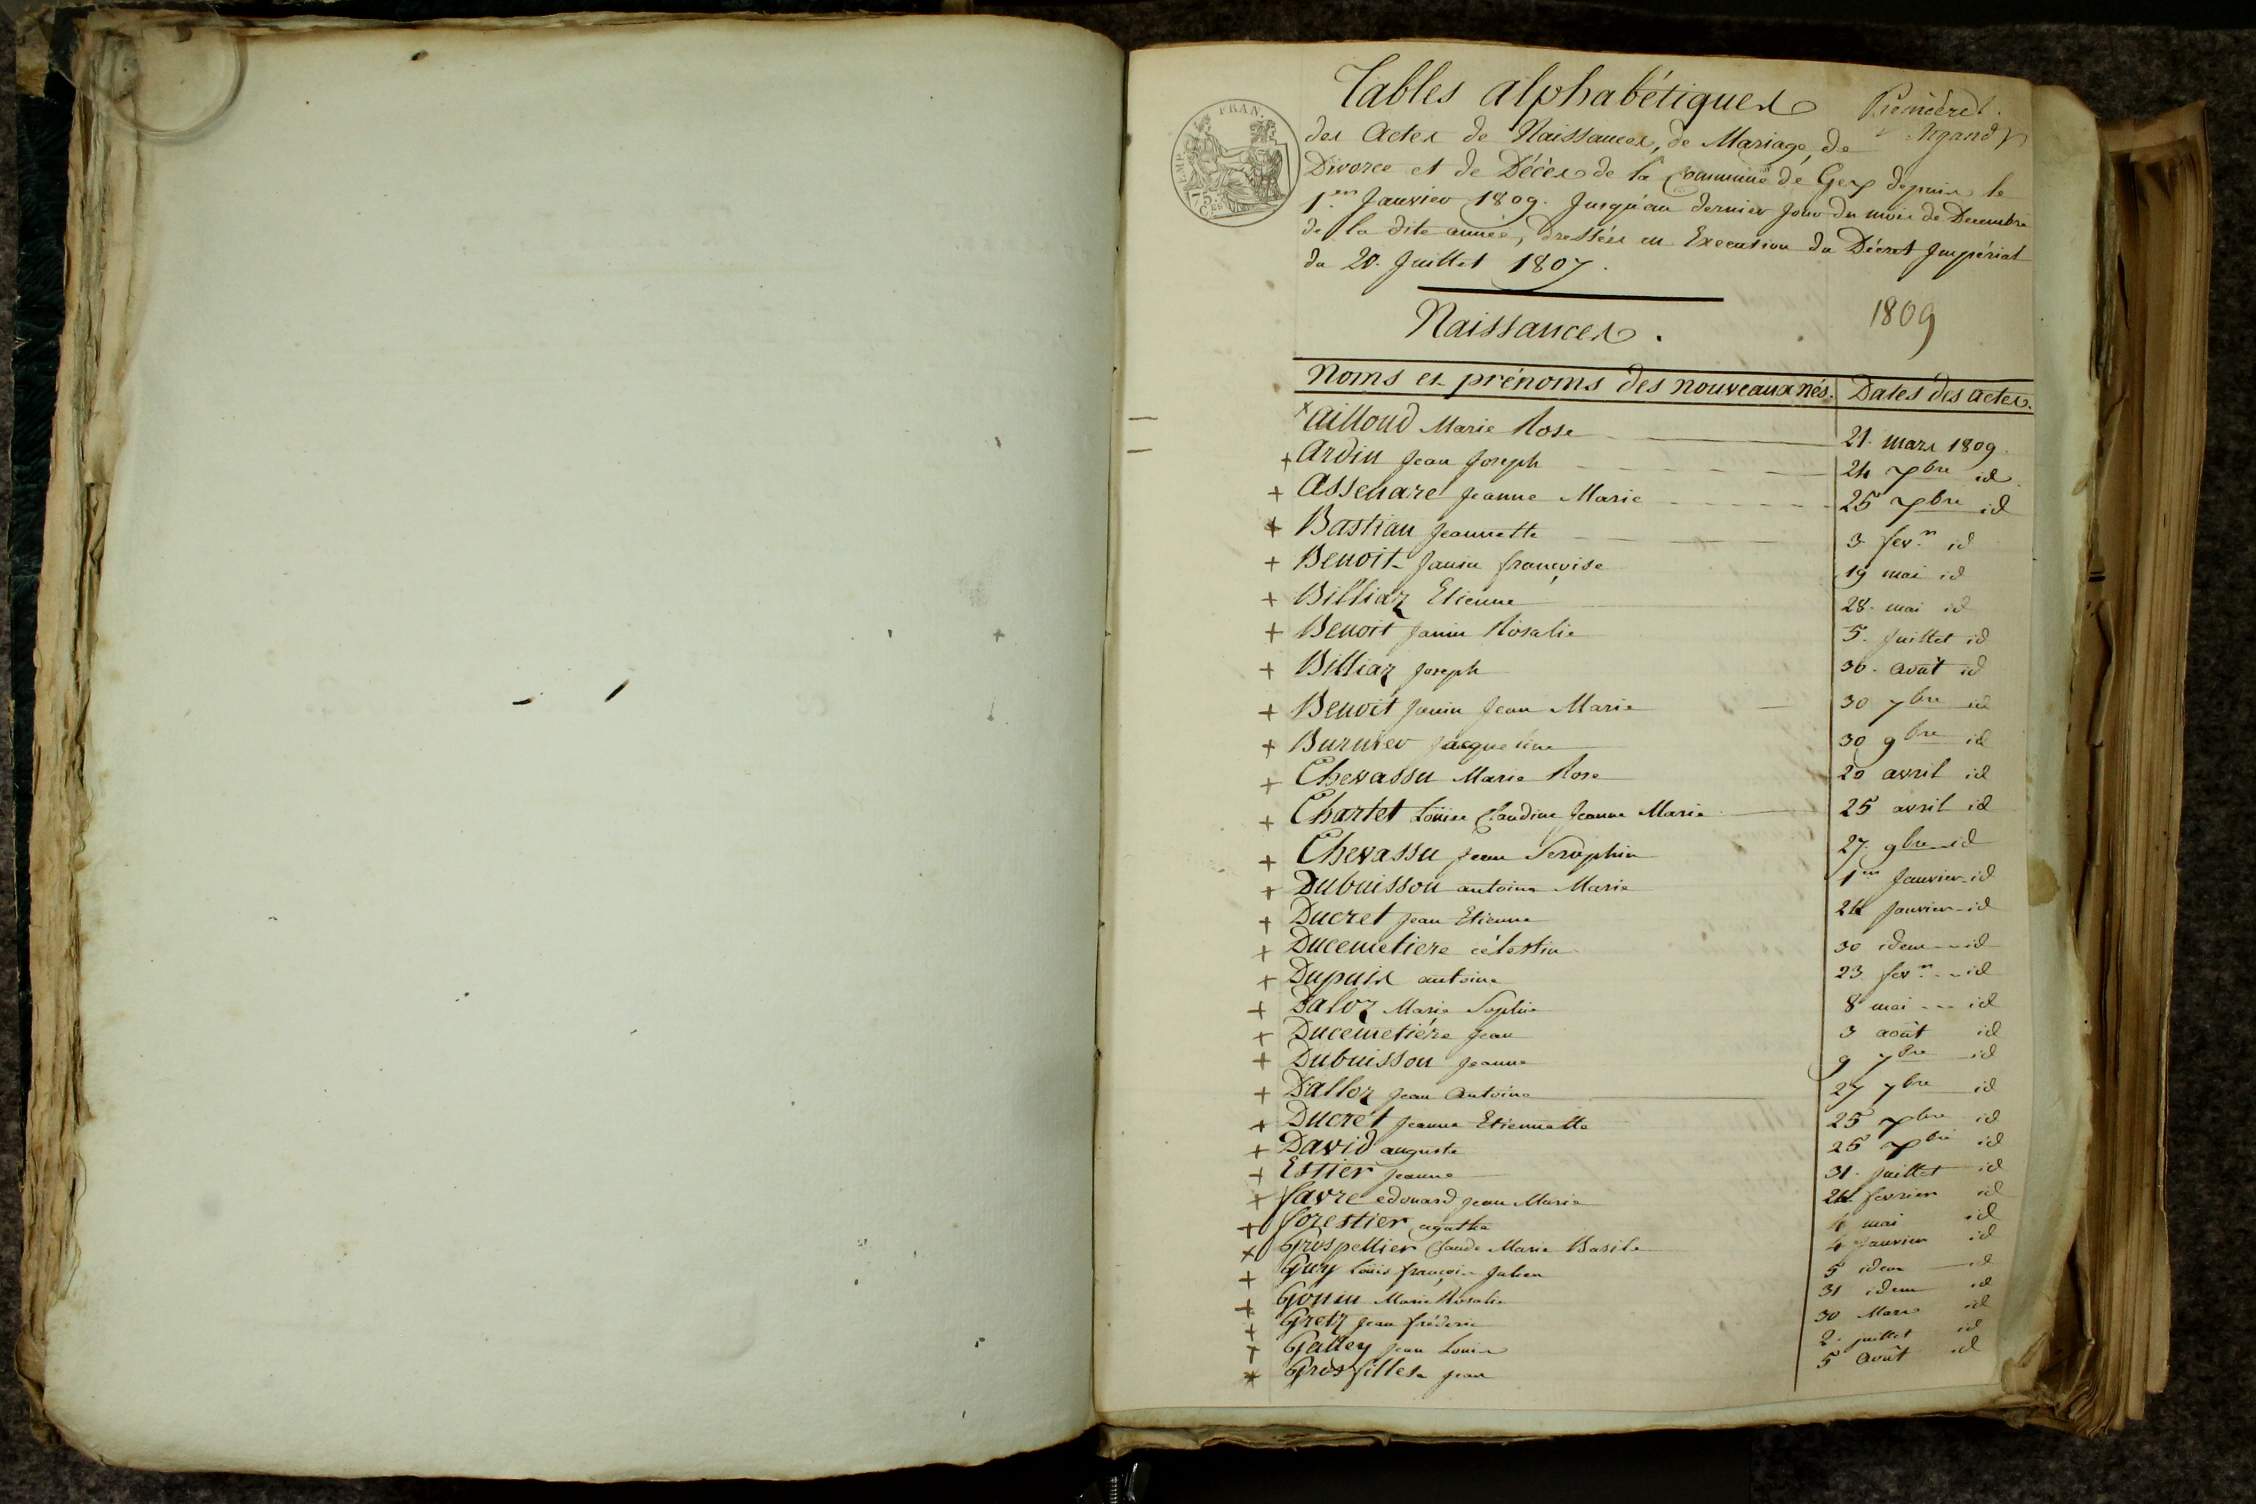 Tables alphabétiques
des Actes de Naissances, de Mariage, de
Divorce et de Décès de la Commune de Gex depuis le
1.er Janvier 1809. Jusqu'au dernier Jour du mois de Decembre
de la dite année, dressées en Execution du Décret Impérial
du 20. Juillet 1807.
EMP. FRAN.
75.
Naissances.
1809
Noms et prénoms des nouveaux nés. Dates des actes.
Ailloud Marie Rose 21. mars 1809.
Ardin Jean Joseph 24 Xbre id.
Assenare Jeanne Marie 25 Xbre id
Bastian Jeannette 3 fev.er id
Benoit-Janin françoise 19 mai id
Billiaz Etienne 28. mai id
Benoit Janin Rosalie 5. Juillet id
Billiaz Joseph 30. août id
Benoit Janin Jean Marie 30 7bre id
Burnier Jacqueline 30 9bre id
Chevassu Marie Rose 20 avril id
Chartet Louise Claudine Jeanne Marie 25 avril id
Chevassu Jean Seraphin 27. 9bre id
Dubuisson antoine Marie 1er Janvier id
Ducret Jean Etienne 24 Janvier id
Ducemetiere célestin 30 idem id
Dupuis antoine 23 fev.er id
Daloz Marie Sophie 8 mai id
Ducemetiére Jean 3 août id
Dubuisson Jeanne 9 7bre id
Dalloz Jean Antoine 27 7bre id
Ducret Jeanne Etiennette 25 Xbre id
David auguste 25 Xbre id
Estier Jeanne 31. Juillet id
favre edouard Jean Marie 24. fevrier id
forestier agathe 4 mai id
Grospellier Claude Marie Basile 4 Janvier id
Guy Louis françois Julien 5 idem id
Gonin Marie Rosalie 31 idem id
Gretz Jean fréderic 30 Mars id
Galley Jean Louis 2. juillet id
Grosfilley Jean 5 août id